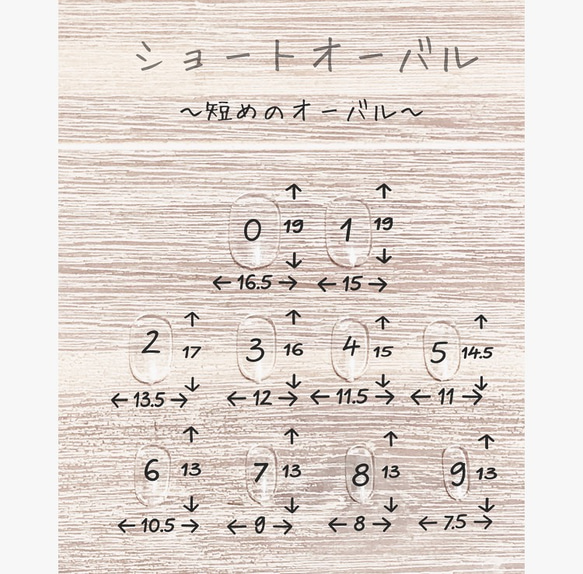 ショートオーバル
〜短めのオーバル〜
0 ↑ 19 ↓ ← 16.5 →
1 ↑ 19 ↓ ← 15 →
2 ↑ 17 ↓ ← 13.5 →
3 ↑ 16 ↓ ← 12 →
4 ↑ 15 ↓ ← 11.5 →
5 ↑ 14.5 ↓ ← 11 →
6 ↑ 13 ↓ ← 10.5 →
7 ↑ 13 ↓ ← 9 →
8 ↑ 13 ↓ ← 8 →
9 ↑ 13 ↓ ← 7.5 →